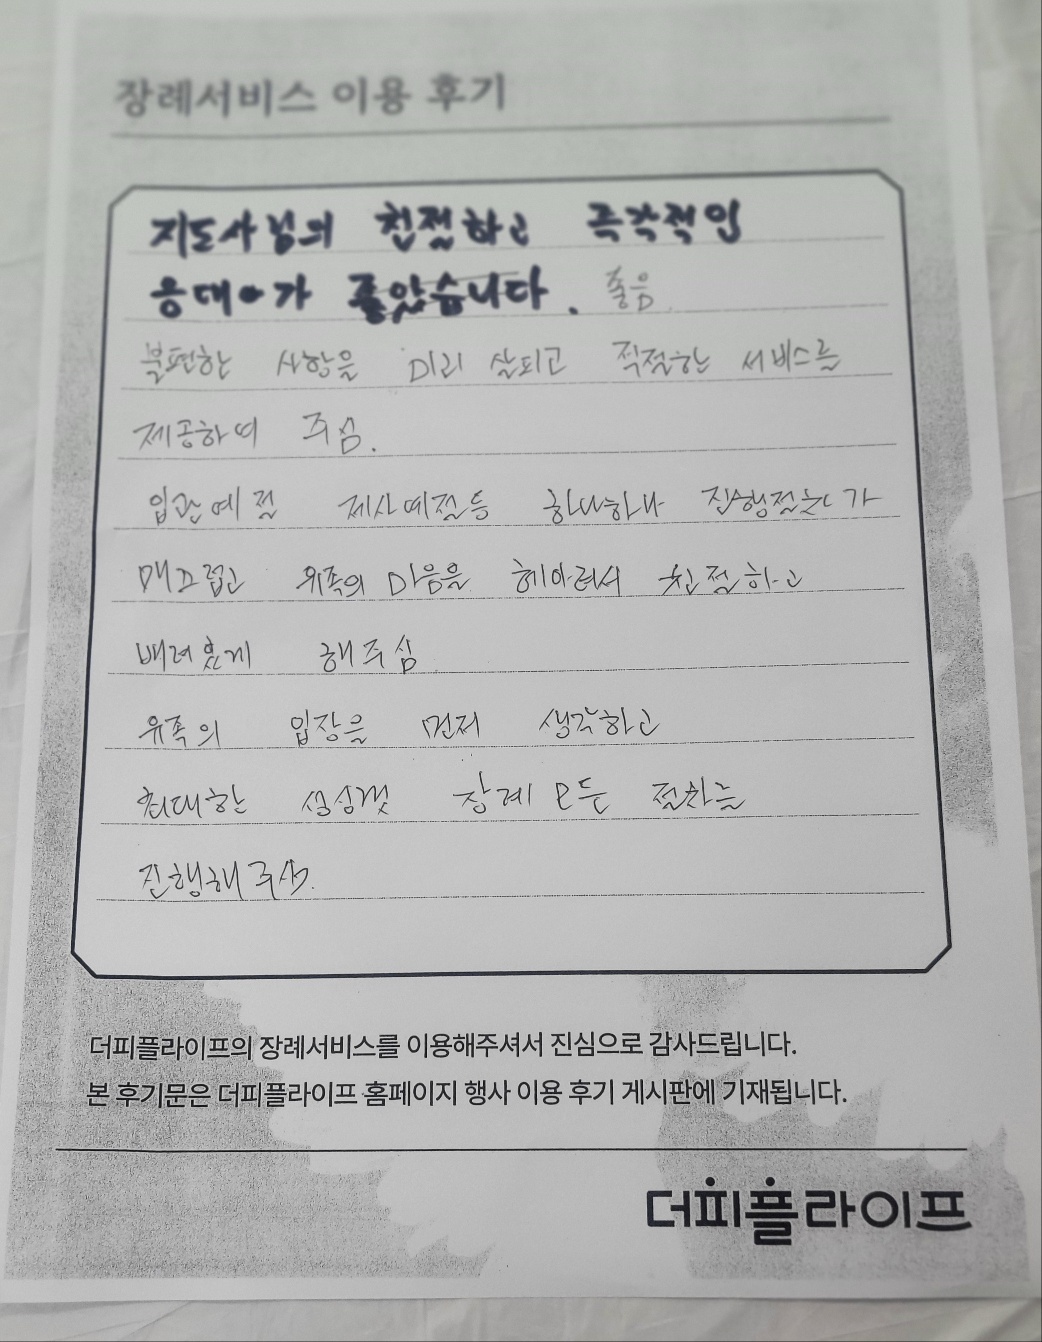 장례서비스 이용 후기
지도사님의 친절하고 즉각적인
응대가 좋았습니다. 좋음.
불편한 사항을 미리 살피고 적절한 서비스를
제공하여 주심.
입관예절 제사예절등 하나하나 진행절차가
매끄럽고 유족의 마음을 헤아려서 친절하고
배려있게 해주심
유족의 입장을 먼저 생각하고
최대한 성심껏 장례 모든 절차를
진행해주심.
더피플라이프의 장례서비스를 이용해주셔서 진심으로 감사드립니다.
본 후기문은 더피플라이프 홈페이지 행사 이용 후기 게시판에 기재됩니다.
더피플라이프